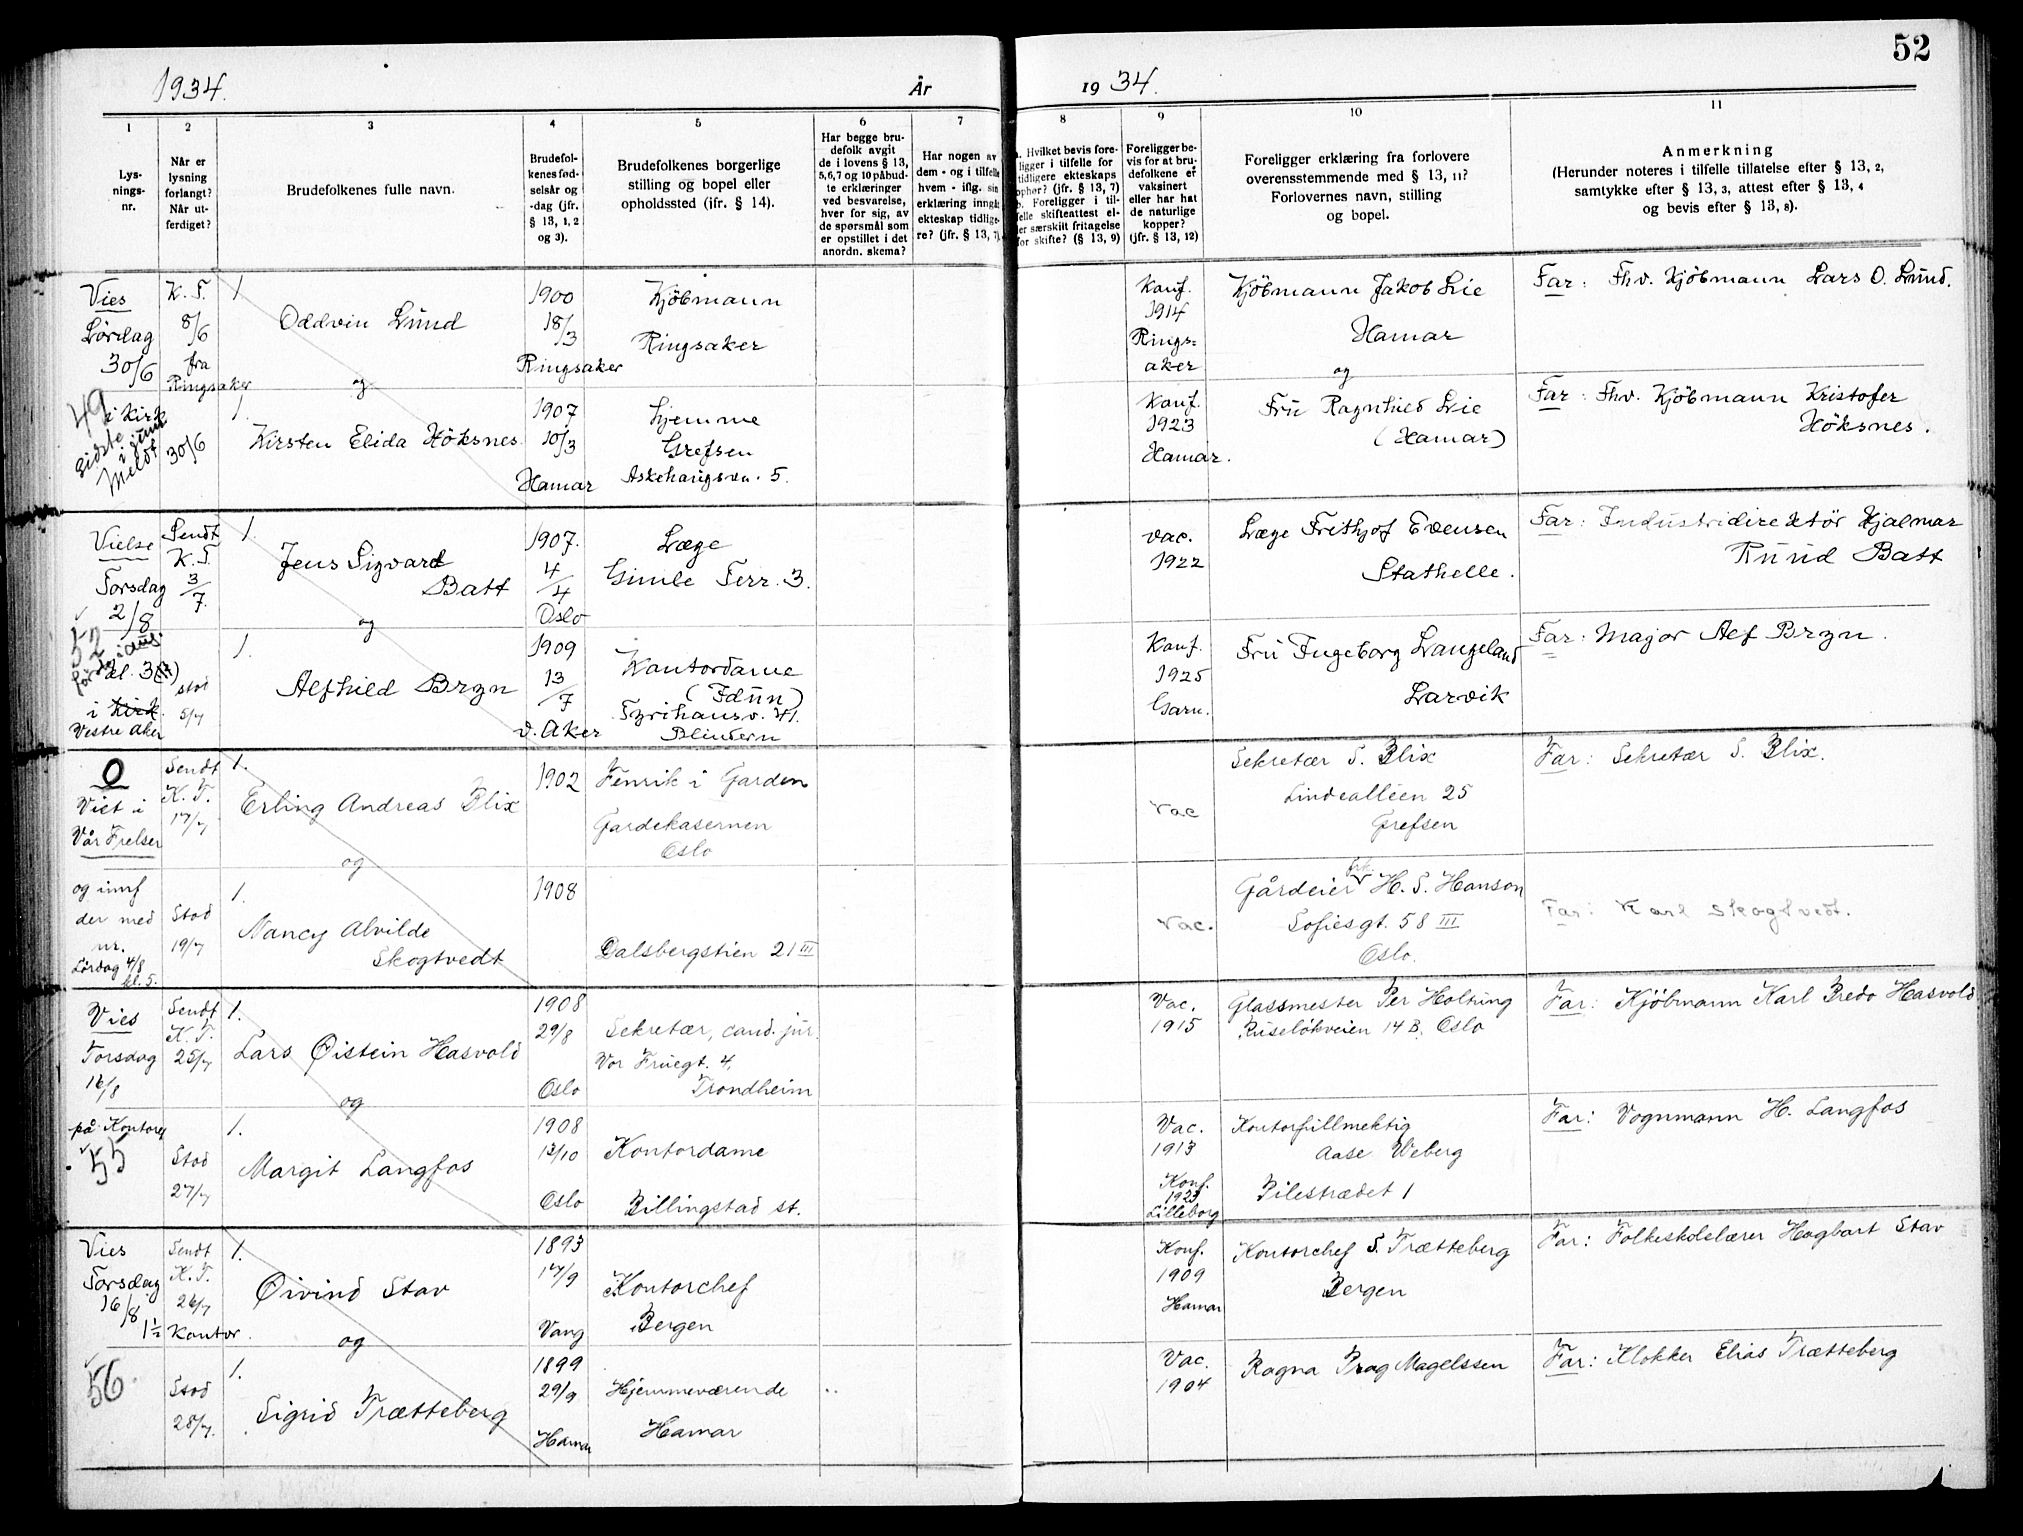 52
1934. År 19 34.
1 2 3 4 5 6 7 8 9 10 11
Lys-
nings-
nr.
Når er
lysning
forlangt?
Når ut-
ferdiget?
Brudefolkenes fulle navn.
Brudefol-
kenes fød-
selsår og
-dag (jfr.
§ 13, 1, 2
og 3).
Brudefolkenes borgerlige
stilling og bopel eller
opholdssted (ifr. § 14).
Har begge bru-
defolk avgit
de i lovens § 13,
5,6,7 og 10 påbud-
te erklæringer
ved besvarelse,
hver for sig, av
de spørsmål som
er opstillet i det
anordn. skema?
Har nogen av
dem - og i tilfelle
hvem - iflg. sin
erklæring inngå
ekteskap tidlige-
re? (jfr. § 13, 7)
a. Hvilket bevis fore-
ligger i tilfelle for
tidligere ekteskaps
ophør? (jfr. § 13, 7)
b. Foreligger i til-
felle skifteattest el-
ler særskilt fritagelse
for skifte? (§ 13, 9)
Foreligger be-
vis for at bru-
defolkene er
vaksinert
eller har hat
de naturlige
kopper?
(jfr. § 13, 12)
Foreligger erklæring fra forlovere
overensstemmende med § 13, 11?
Forlovernes navn, stilling
og bopel.
Anmerkning
(Herunder noteres i tilfelle tillatelse efter § 13, 2,
samtykke efter § 13, 3, attest efter § 13, 4
og bevis efter § 13, 8).
Vies
Lørdag
30/6
49
i Kirk
sidste
i juni
Meldt
K. F.
8/6
fra
Ringsaker
30/6
1.
Oddvin Lund
og
1.
Kirsten Elida Höksnes
1900
18/3
Ringsaker
1907
10/3
Hamar
Kjöbmann
Ringsaker
hjemme
Grefsen
Askehaugsvn. 5.
Konf.
1914
Rings=
aker
Konf.
1923
Hamar.
Kjöbmann Jakob Lie
Hamar
og
Fru Ragnhild Lie
(Hamar)
Far: Fhv. Kjöbmann Lars O. Lund.
Far: Fhv. Kjöbmann Kristofer
Höksnes.
Vielse
Torsdag
2/8
52
kl. 3
i Kirk.
Vestre Aker
Sendt
K. F.
3/7.
Stod
5/7
1.
Jens Sigvard
Batt
og
1.
Alfhild Bryn
1907.
4/4
Oslo
1909
13/7
V. Aker
Læge
Gimle Terr. 3.
Kontordame
(Idun)
Tyrihansv. 41.
Blindern
Vac.
1922
Konf.
1925
Garn.
Læge Frithjof Evensen
Stathelle.
Fru Ingeborg Langeland
Larvik
Far: Industridirektör Hjalmar
Ruud Batt
Far: Major Alf Bryn.
0
Viet i
Vår Frelser
og innf
der med
nr.
Lördag 4/8
kl. 5.
Sendt
K. F.
17/7
Stod
19/7
1.
Erling Andreas Blix
og
1.
Nancy Alvilde
Skogtvedt
1902
1908
Fenrik i Garden
Gardekasernen
Oslo
Dalsbergstien 21 III
Vac
Vac.
Sekretær S. Blix
Lindealléen 25
Grefsen
Gårdeier frk. H. S. Hanson
Sofiesgt. 58 III
Oslo.
Far: Sekretær S. Blix.
Far: Karl Skogtvedt.
Vies
Torsdag
16/8
på Kontoret
55
Sendt
K. F.
25/7
Stod
27/7
1.
Lars Øistein Hasvold
og
1.
Margit Langfos
1908
29/8
Oslo
1908
13/10
Oslo
Sekretær, cand. jur.
Vor Fruegt. 4,
Trondheim
Kontordame
Billingstad st.
Vac.
1915
Vac.
1913
Konf.
1923
Lilleborg
Glassmester Per Holtung
Ruselökveien 14 B. Oslo
Kontorfullmektig
Aase Weberg
Pilestrædet 1
Far: Kjöbmann Karl Bredo Hasvold
Far: Vognmann H. Langfos
Vies
Torsdag
16/8
1½
56
Sendt
K. F.
26/7
Kontor.
Stod
28/7.
1.
Øivind Stav
og
1.
Sigrid Trætteberg
1893
17/9
Vang
1899
29/9
Hamar
Kontorchef
Bergen
Hjemmeværende
Hamar
Konf.
1909
Hamar
Vac.
1904
Kontorchef S. Trætteberg
Bergen
Ragna Prag Magelssen
Far: Folkeskolelærer Hagbart Stav
Far: Klokker Elias Trætteberg